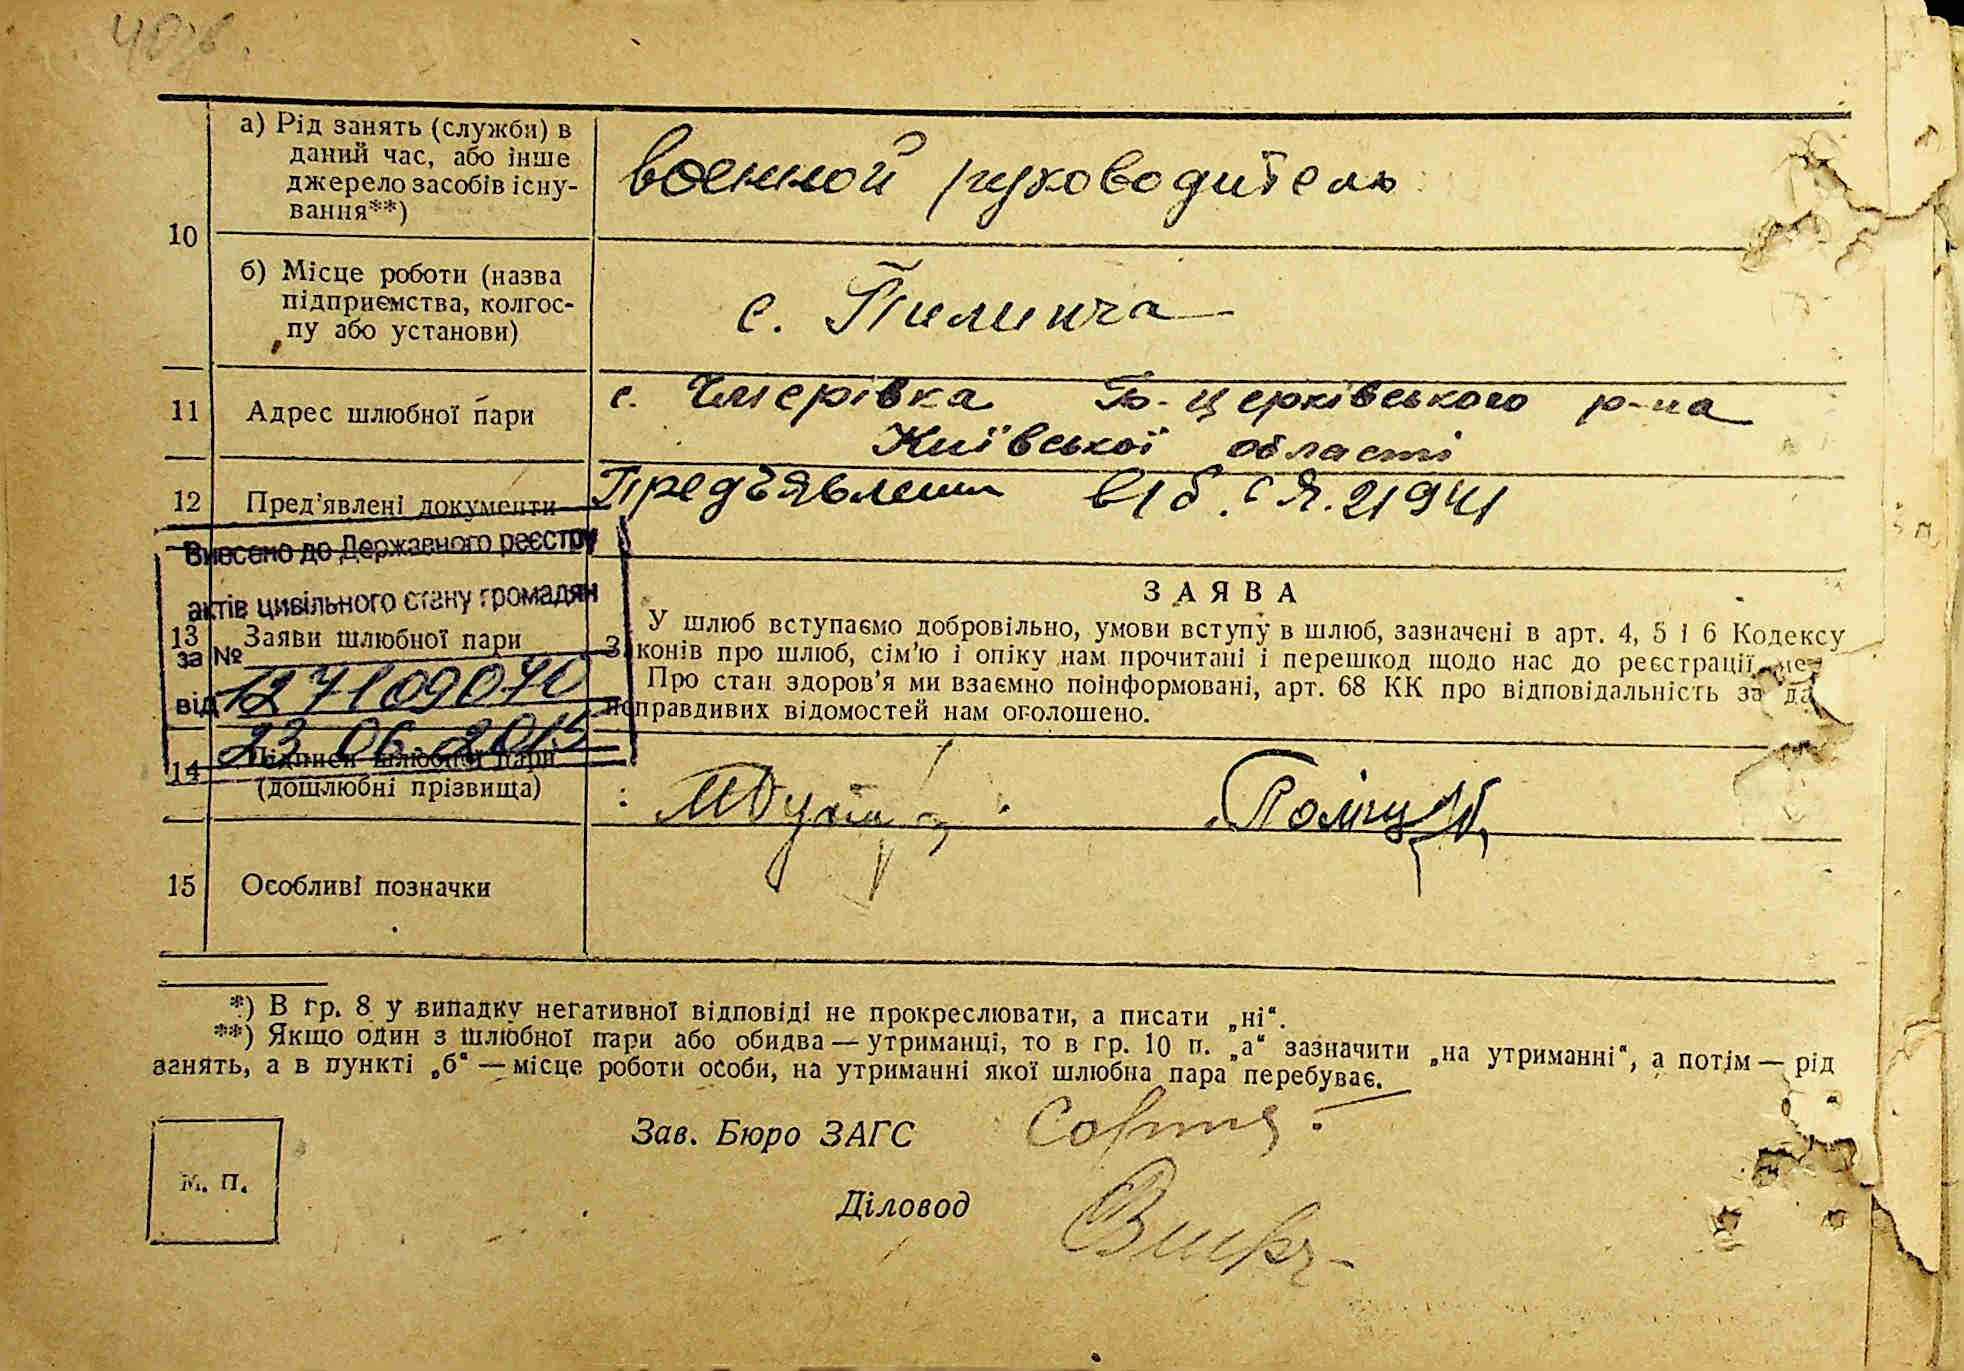 а) Рід занять (служби) в
даний час, або інше
джерело засобів існу-
вання**)
военной руководитель
10
б) Місце роботи (назва
підприємства, колгос-
пу або установи)
с. Пилипча
11 Адрес шлюбної пари
с. Чмерівка Б-церківського р-на
Київської області
12 Пред’явлені документи
Предъявлени
Внесено до Державного реєстру
актів цивільного стану громадян
за №
127109070
від
23 06 2015
13 Заяви шлюбної пари
ЗАЯВА
У шлюб вступаємо добровільно, умови вступу в шлюб, зазначені в арт. 4, 5 і 6 Кодексу
Законів про шлюб, сім’ю і опіку нам прочитані і перешкод щодо нас до реєстрації
Про стан здоров’я ми взаємно поінформовані, арт. 68 КК про відповідальність за
неправдивих відомостей нам оголошено.
14 Підписи шлюбної пари
(дошлюбні прізвища)
15 Особливі позначки
*) В гр. 8 у випадку негативної відповіді не прокреслювати, а писати „ні“.
**) Якщо один з шлюбної пари або обидва — утриманці, то в гр. 10 п. „а“ зазначити „на утриманні“, а потім — рід
занять, а в пункті „б“ — місце роботи особи, на утриманні якої шлюбна пара перебуває.
Зав. Бюро ЗАГС
М. П.
Діловод